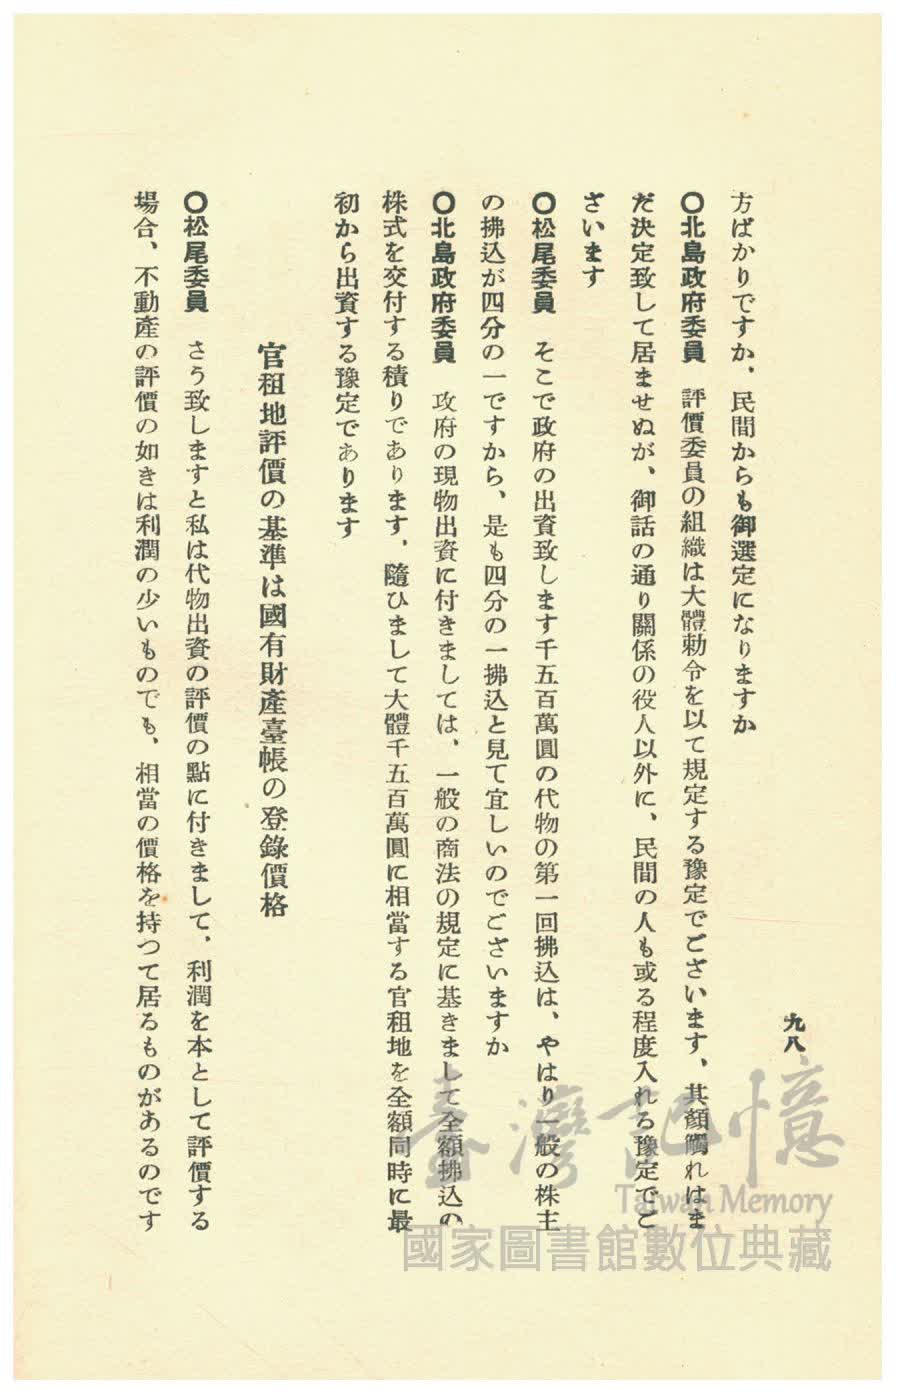 九八
方ばかりですか、民間からも御選定になりますか
〇北島政府委員　評價委員の組織は大體勅令を以て規定する豫定でございます、其顏觸れはま
だ決定致して居ませぬが、御話の通り關係の役人以外に、民間の人も或る程度入れる豫定でご
ざいます
〇松尾委員　そこで政府の出資致します千五百萬圓の代物の第一回拂込は、やはり一般の株主
の拂込が四分の一ですから、是も四分の一拂込と見て宜しいのでございますか
〇北島政府委員　政府の現物出資に付きましては、一般の商法の規定に基きまして全額拂込の
株式を交付する積りであります、隨ひまして大體千五百萬圓に相當する官租地を全額同時に最
初から出資する豫定であります
官租地評價の基準は國有財產臺帳の登錄價格
〇松尾委員　さう致しますと私は代物出資の評價の點に付きまして、利潤を本として評價する
場合、不動產の評價の如きは利潤の少いものでも、相當の價格を持つて居るものがあるのです
臺灣記憶
Taiwan Memory
國家圖書館數位典藏